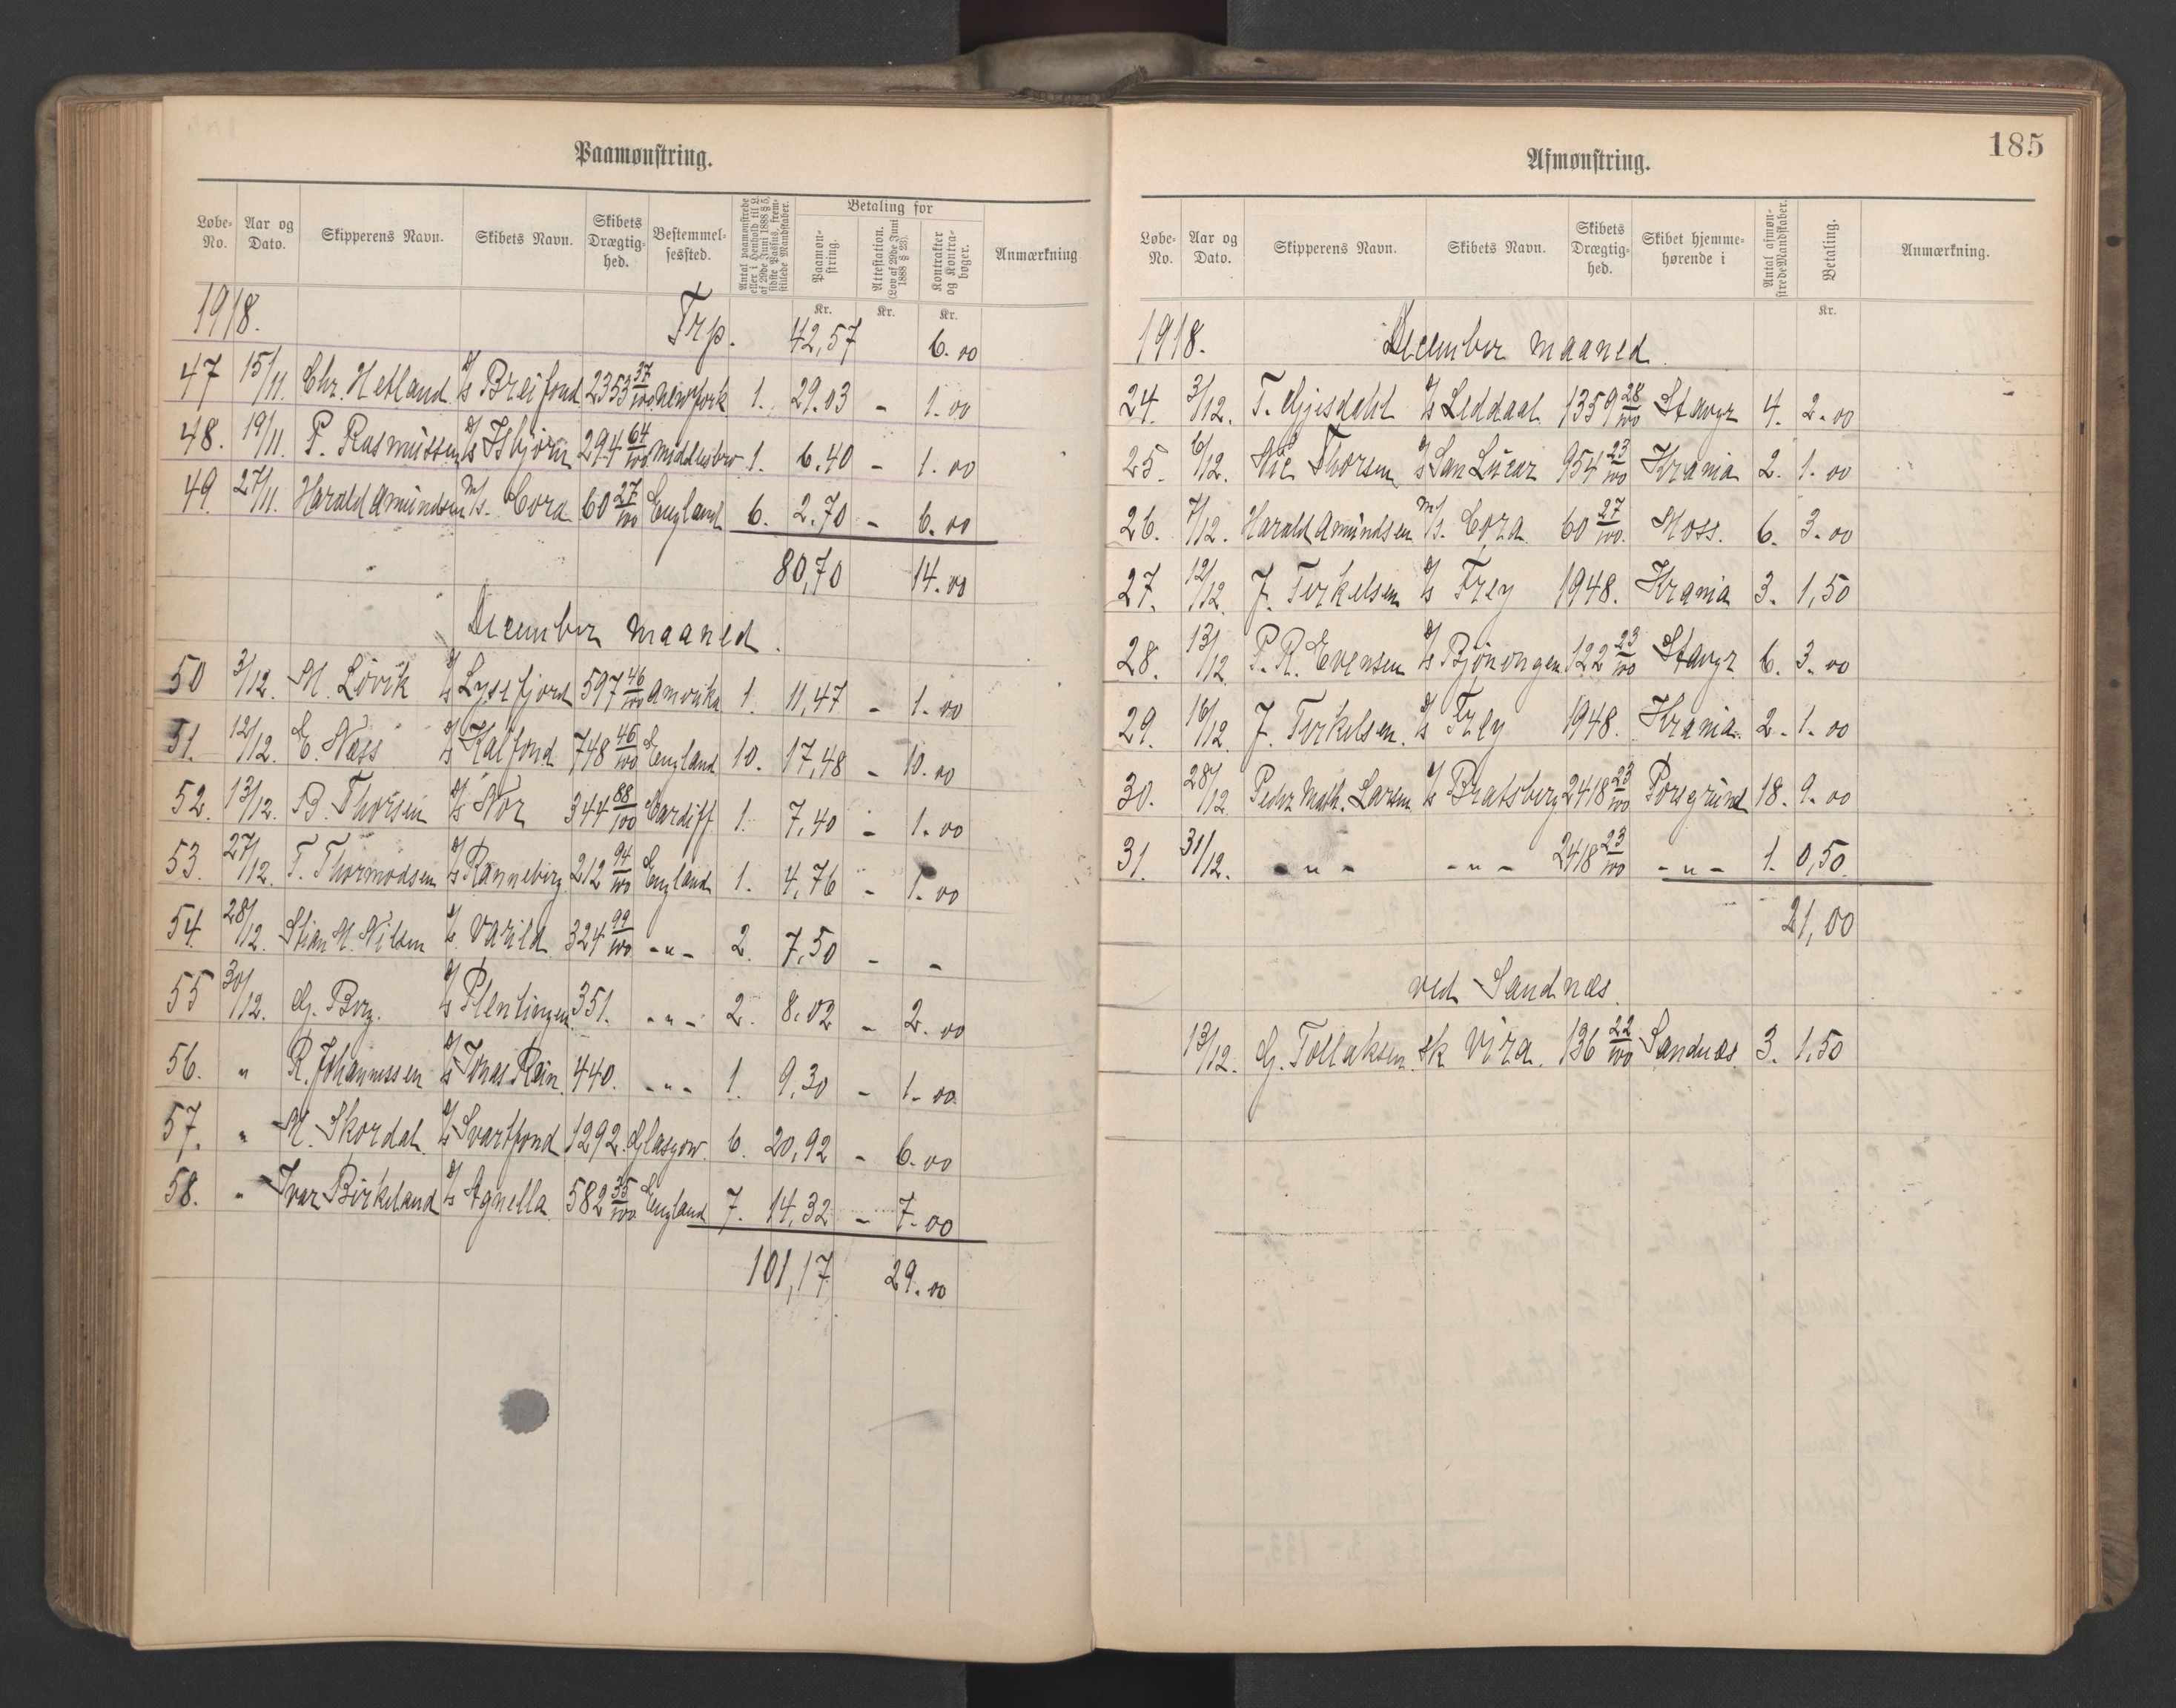 Paamønstring.
Løbe-No. Aar og Dato. Skipperens Navn. Skibets Navn. Skibets Drægtighed. Bestemmelsessted. Antal paamønstrede eller i Henhold til L. af 29de Juni 1888 § 5, sidste Passus, fremstillede Mandskaber. Betaling for Paamønstring. Attestation. (Lov af 29de Juni 1888 § 23). Kontrakter og Kontrabøger. Anmærkning
Kr. Kr. Kr.
1918. Trp. 42,57 6.00
47 15/11. Chr. Hetland D/S Breifond 2353 37/100 New York 1. 29.03 - 1.00
48. 19/11. P. Rasmussen D/S Isbjørn 294 64/100 Middlesbro 1. 6.40 - 1.00
49. 27/11. Harald Amundsen M/S. Cora 60 27/100 England 6. 2.70 - 6.00
80,70 14.00
December maaned.
50 3/12. M. Lövik D/S Lysefjord 597 46/100 Amerika 1. 11,47 - 1.00
51. 12/12. E. Næss D/S Kalfond 748 46/100 England 10. 17,48 - 10.00
52. 13/12. B. Thorsen D/S Nor 344 88/100 Cardiff 1. 7,40 - 1.00
53. 27/12. T. Thormodsen D/S Ranneberg 212 94/100 England 1. 4,76 - 1.00
54. 28/12. Stian M. Nilsen D/S. Varild 324 99/100 -"- 2. 7,50 - -
55 30/12. G. Berg. D/S Plentingen 351. -"- 2. 8,02 - 2.00
56. " R. Johannessen D/S Jonas Rein. 440. -"- 1. 9,30 - 1.00
57. " M. Skordal. D/S Svartfond 1292. Glasgow. 6. 20,92 - 6.00
58. " Ivar Birkeland D/S Agnella 582 35/100 England 7. 14,32 - 7.00
101,17 29.00
185
Afmønstring.
Løbe-No. Aar og Dato. Skipperens Navn. Skibets Navn. Skibets Drægtighed. Skibet hjemmehørende i Antal afmønstrede Mandskaber. Betaling. Anmærkning.
Kr.
1918. December maaned.
24. 3/12. T. Gjesdahl D/S Leddaal 1359 28/100 Stavgr 4. 2.00
25. 6/12. Nic Thorsen D/S San Lucar 954 23/100 Krania 2. 1.00
26. 7/12. Harald Amundsen M/S. Cora 60 27/100. Moss. 6. 3.00
27. 12/12. J. Terkelsen D/S Frey 1948. Krania 3. 1,50
28. 13/12 P. R. Evensen D/S Bjönongen 122 23/100 Stavgr 6. 3.00
29. 16/12 J. Terkelsen. D/S Frey 1948. Krania. 2. 1.00
30. 28/12 Peder Math. Larsen D/S Bratsberg 2418 23/100 Porsgrund 18. 9.00
31. 31/12. -"- -"- 2418 23/100 -"- 1. 0,50.
21,00
ved Sandnes.
13/12. G. Tollaksen. Sk Vira. 136 22/100 Sandnes. 3. 1,50